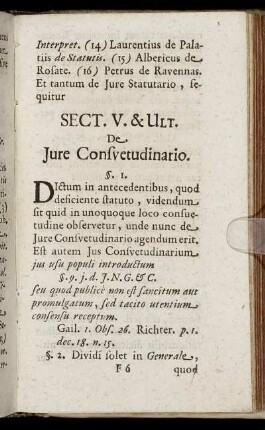 Interpret. (14) Laurentius de Pala-
tiis de Statutis. (15) Albericus de
Rosate. (16) Petrus de Ravennas.
Et tantum de Jure Statutario, se-
quitur
SECT. V. & ULT.
De
Jure Consvetudinario.
§. 1.
DIctum in antecedentibus, quod
deficiente statuto, videndum
sit quid in unoquoque loco consue-
tudine observetur, unde nunc de
Jure Consvetudinario agendum erit.
Est autem Jus Consvetudinarium
jus usu populi introductum
§. 9. j. d. J. N. G. & C.
seu quod publicè non est sancitum aut
promulgatum, sed tacito utentium
consensu receptum.
Gail. 1. Obs. 26. Richter. p. 1.
dec. 18. n. 15.
§. 2. Dividi solet in Generale,
F 6 quod